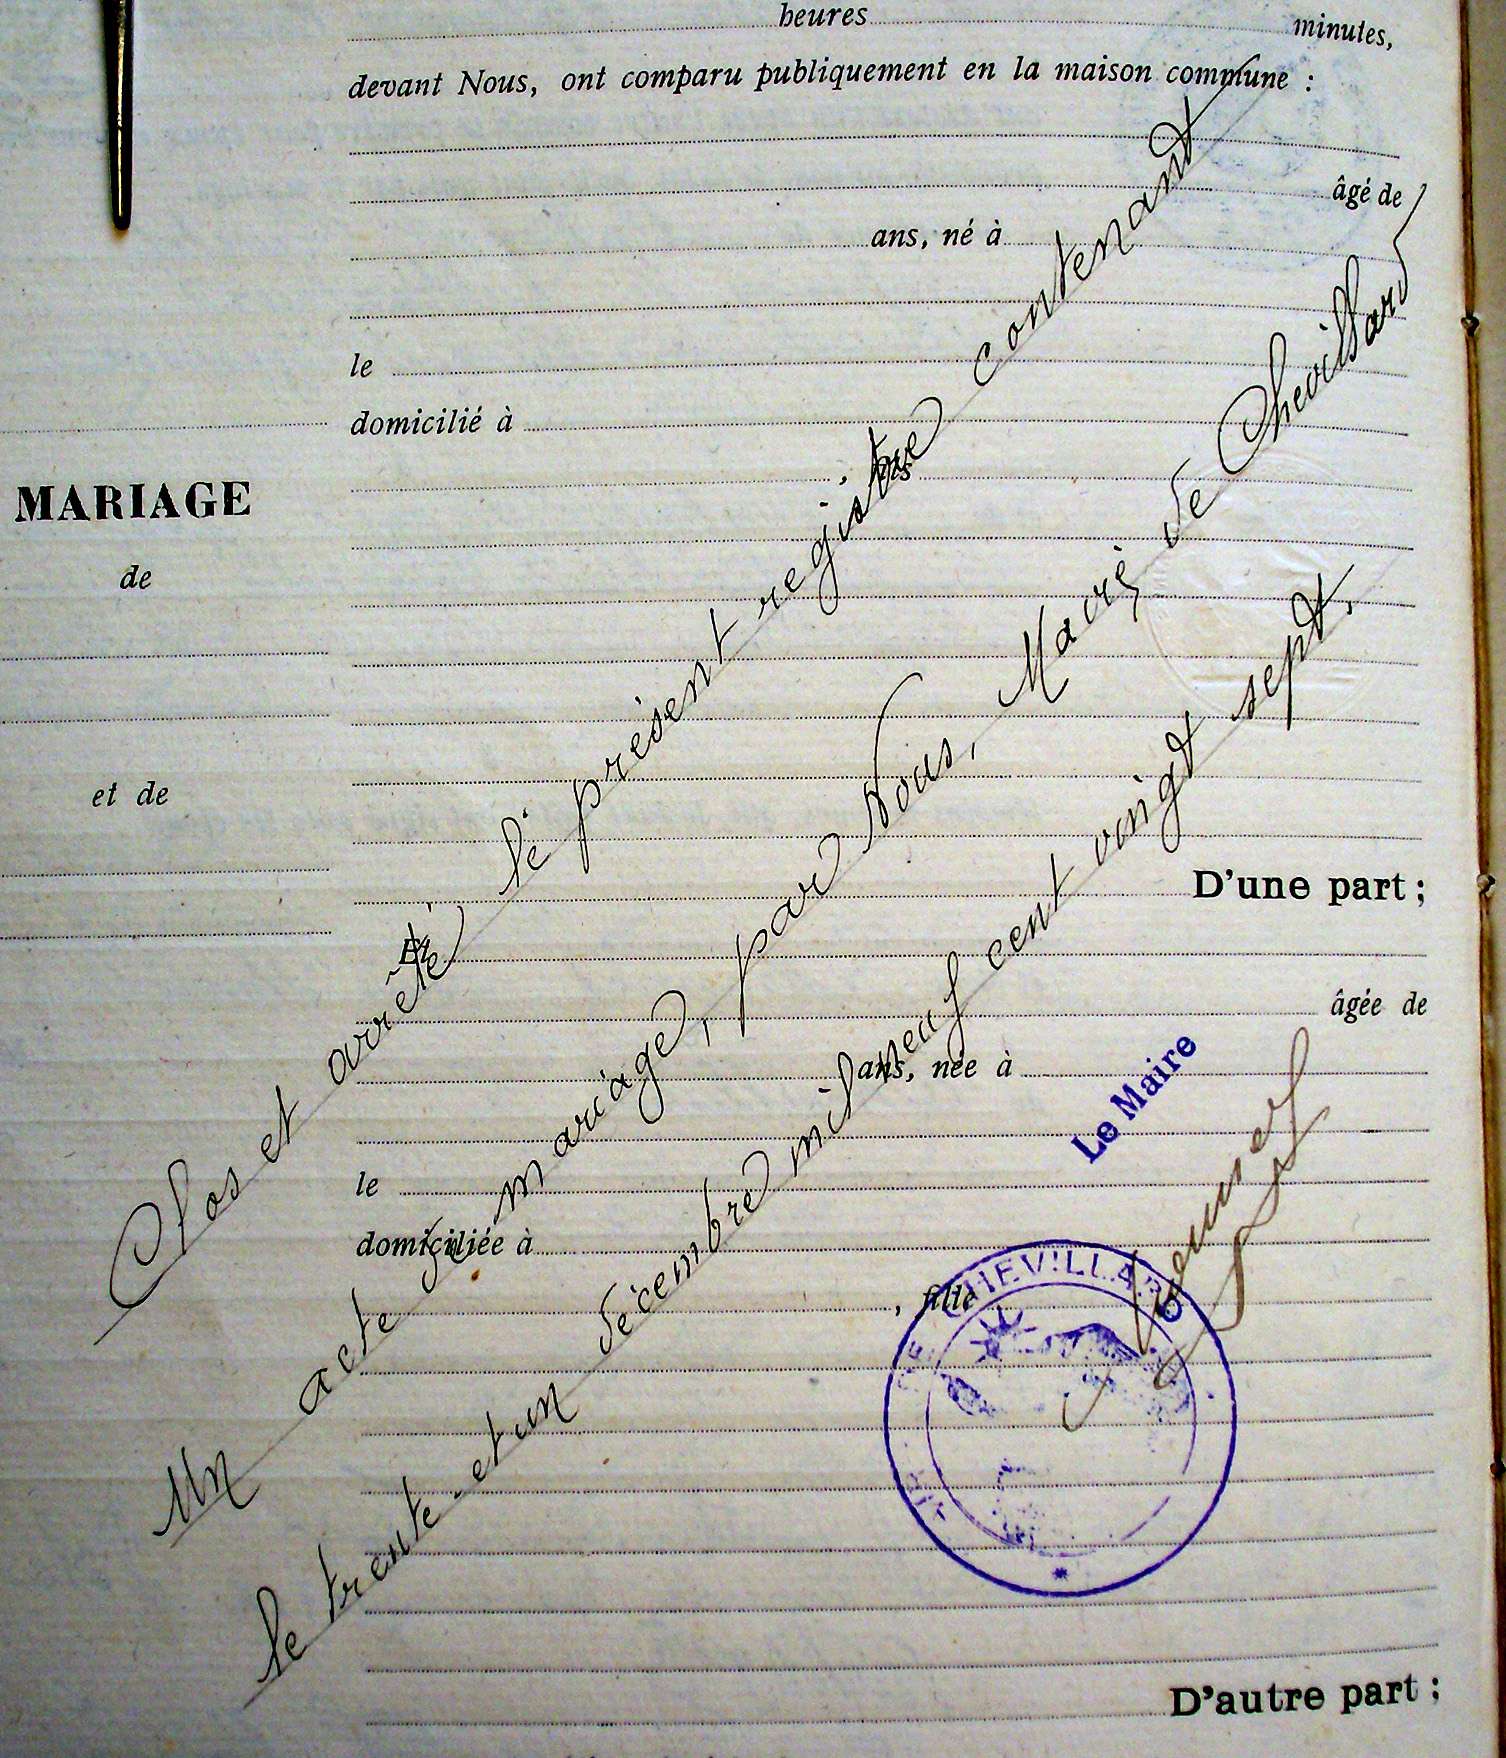 heures minutes,
devant Nous, ont comparu publiquement en la maison commune :
âgé de
ans, né à
le
domicilié à
, fils
MARIAGE
de
et de
D'une part ;
Et
âgée de
ans, née à
le
domiciliée à
, fille
D'autre part ;
Clos et arrêté le présent registre contenant
Un acte de mariage, par Nous, Maire de Chevillard
le trente-et-un décembre mil neuf cent vingt sept.
Le Maire
DE CHEVILLARD